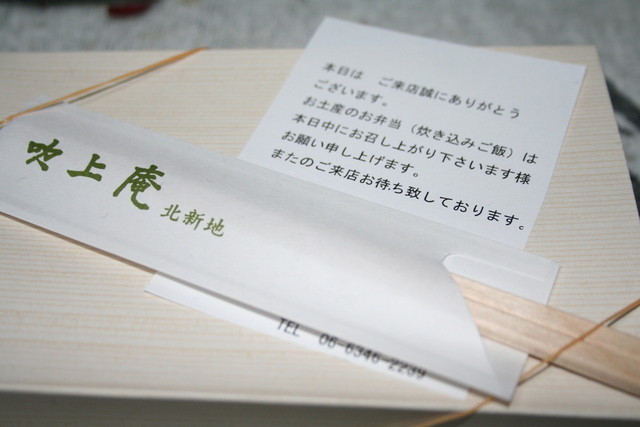 本日は　ご来店誠にありがとう
ございます。
お土産のお弁当（炊き込みご飯）は
本日中にお召し上がり下さいます様
お願い申し上げます。
またのご来店お待ち致しております。
吹上庵 北新地
TEL 06-6346-2239